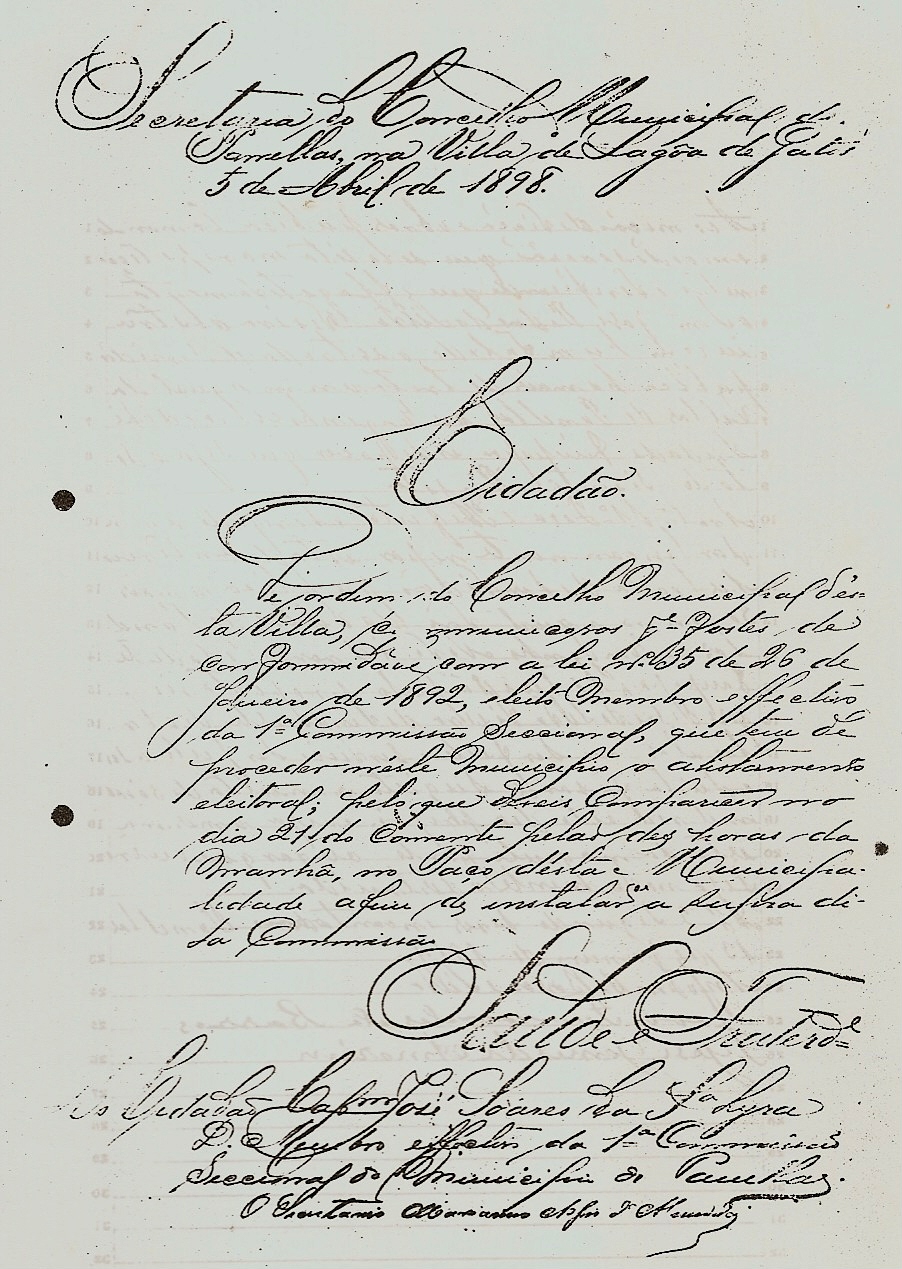 Secretaria do Concelho Municipal de
Panellas, na Villa de Lagôa de Gatos
5 de Abril de 1898.
Cidadão.
De ordem do Concelho Municipal dés-
ta Villa, municopos fostes, de
conformidade com a lei nº 35 de 26 de
Janeiro de 1892, eleito Membro effectivo
da 1ª Commissão Seccional, que tem de
proceder néste Municipio o alistamento
eleitoral; pelo que deveis Comparecer no
dia 21 do Corrente pelas dez horas da
Manhã, no Paço désta Municipa-
lidade afim de instalar a supra di-
ta Commissão
Saude e Fraterdᵉ
Ao Cidadão Capᵐ José Soares da Sª Lyra
D. Membro effectivo da 1ª Commissão
Seccional do Municipio de Panellas.
O Secretario Marianno de Almeida